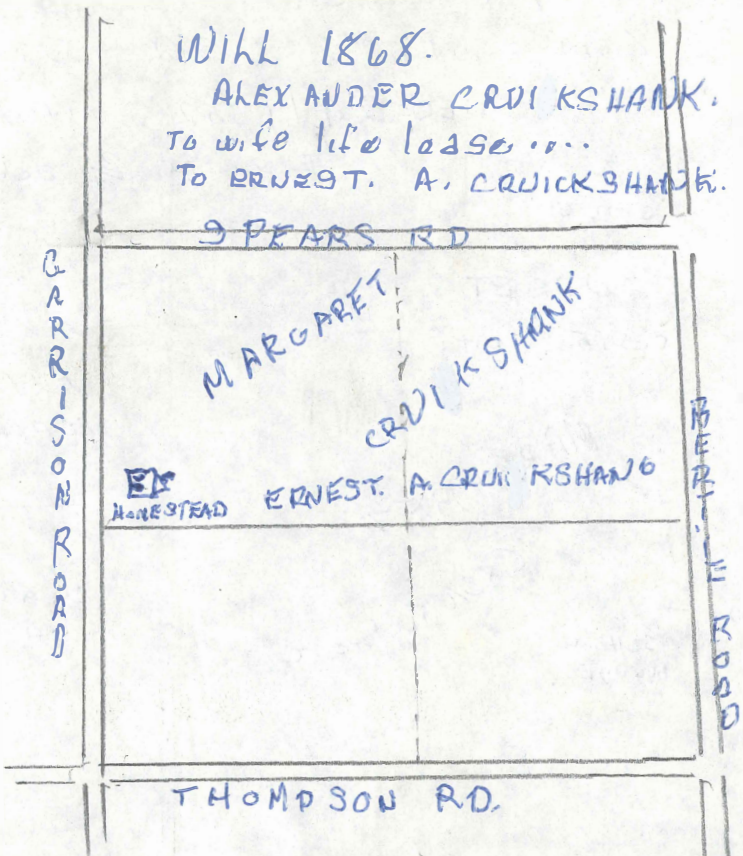 WILL 1868.
ALEXANDER CRUIKSHANK.
To wife life lease ....
To ERNEST. A. CRUICKSHANK.
SPEARS RD
GARRISON ROAD
MARGARET
CRUIKSHANK
BERTIE ROAD
HOMESTEAD
ERNEST. A. CRUIKSHANK
THOMPSON RD.